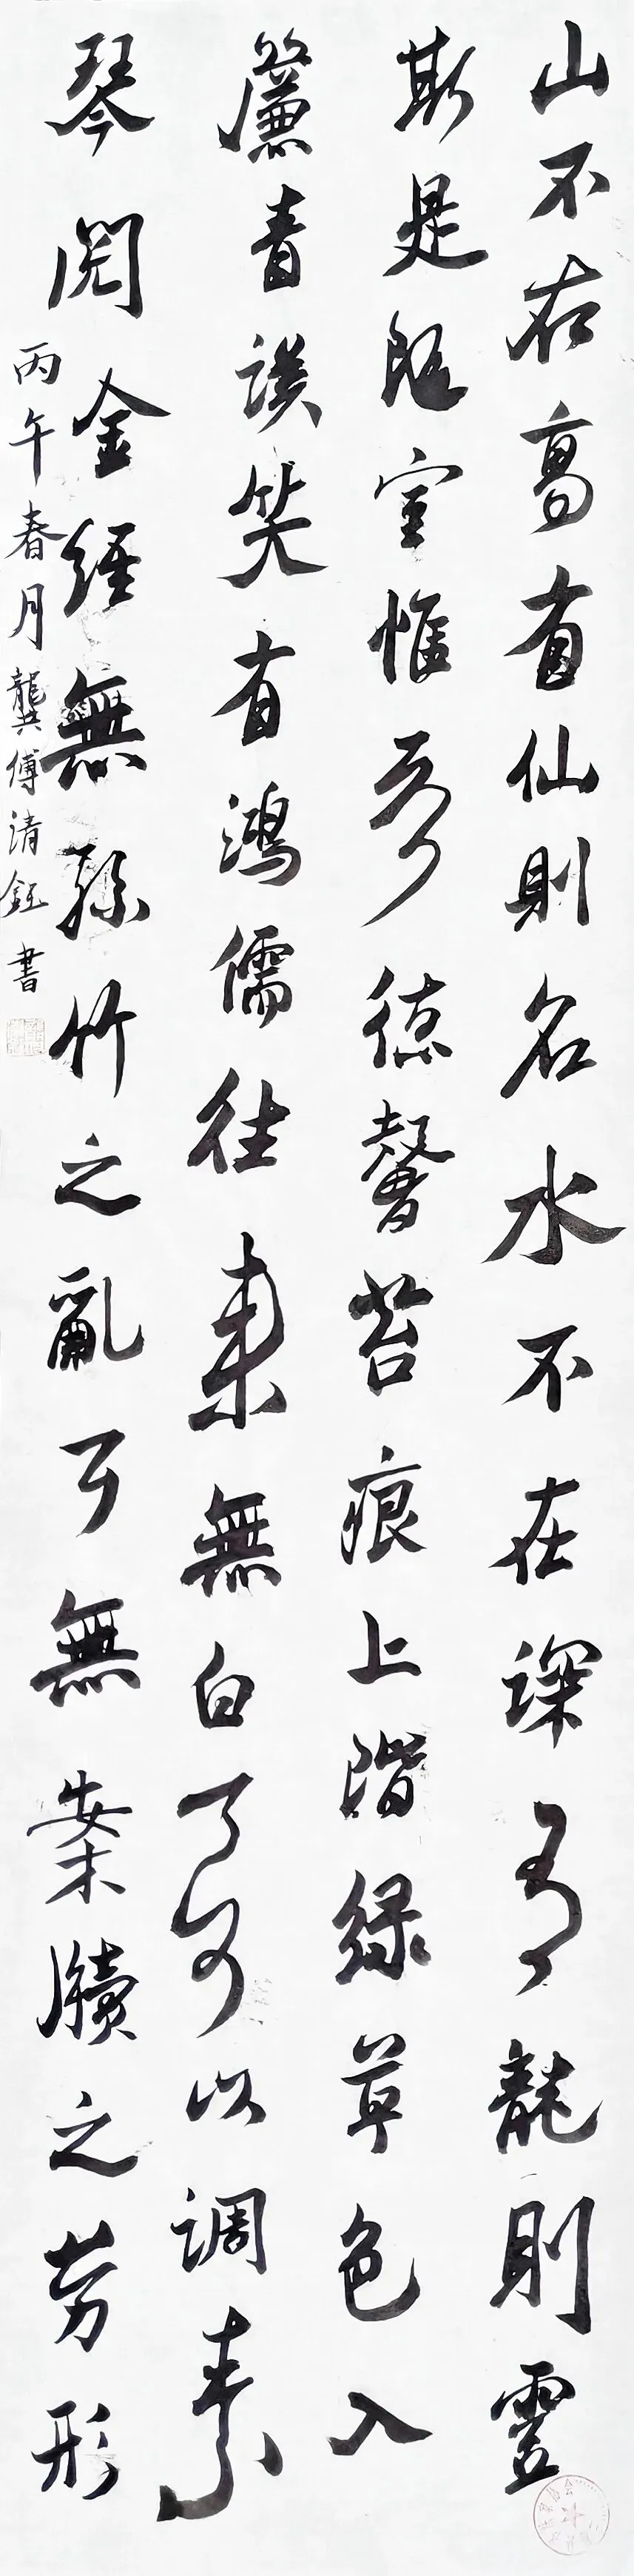 山不在高有仙則名水不在深有龍則靈
斯是陋室惟吾德馨苔痕上階綠草色入
簾青談笑有鴻儒往來無白丁可以調素
琴閱金經無絲竹之亂耳無案牘之勞形
丙午春月龔傅清鈺書